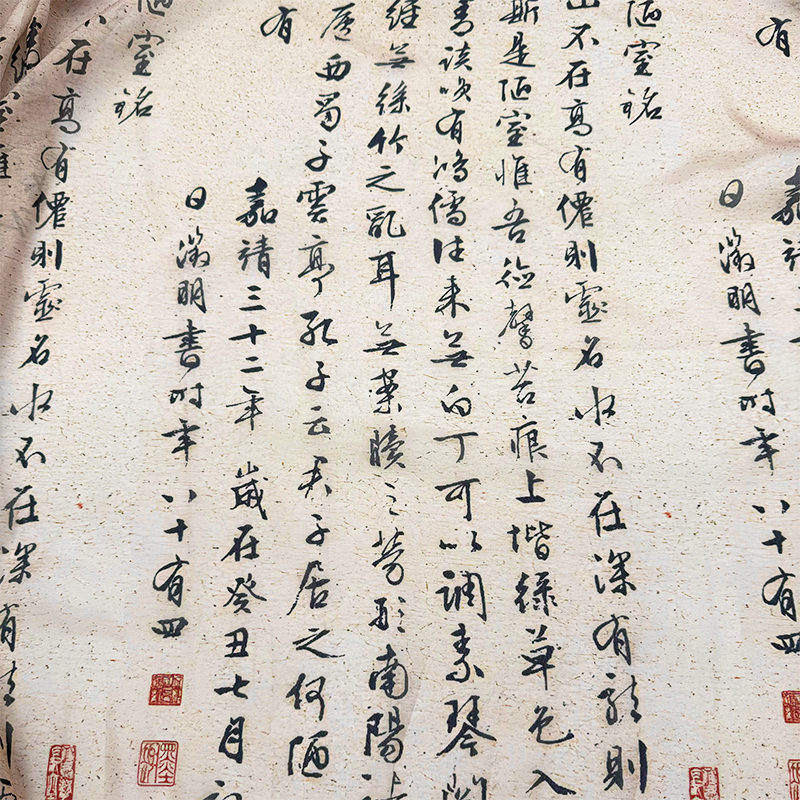 有
嘉靖
日徵明書時年八十有四
陋室銘
山不在高有僊則靈名水不在深有龍則
斯是陋室惟吾德馨苔痕上堦綠草色入
青談咲有鴻儒往來無白丁可以調素琴閱
經無絲竹之亂耳無案牘之勞形南陽諸
廬西蜀子雲亭孔子云君子居之何陋
有
嘉靖三十二年歲在癸丑七月
日徵明書時年八十有四
陋室銘
不在高有僊則靈名水不在深有龍則